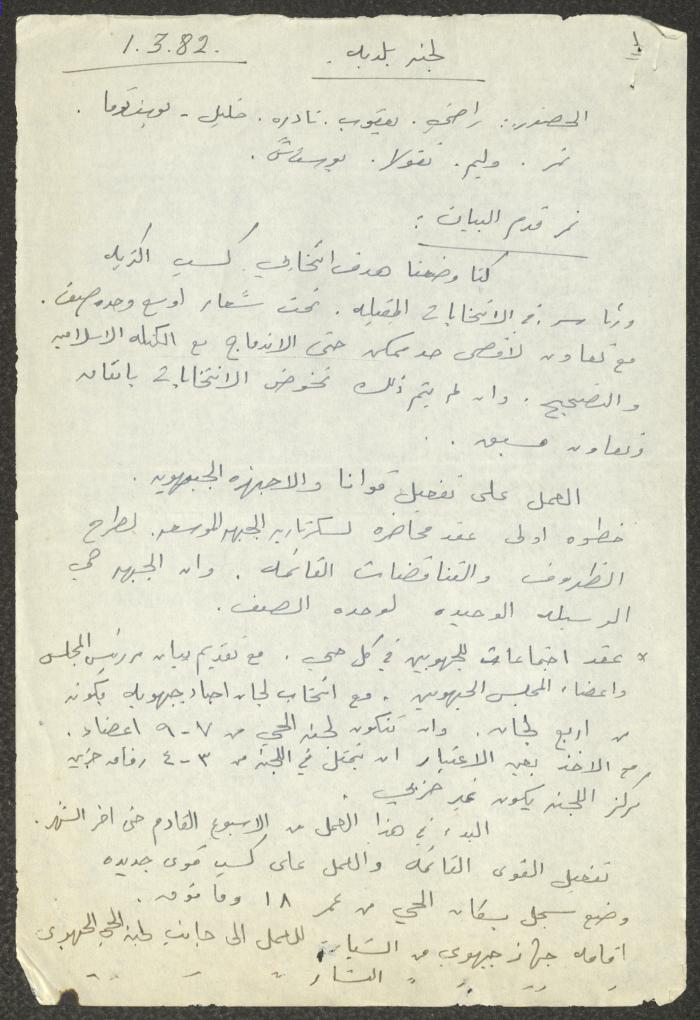 ١
لجنة بلديه . 1.3.82.
الحضور: راضي . يعقوب . نادره . خليل - يوسف توما .
نمر . وليم . نقولا .
نمر قدم البيان :
كنا وضعنا هدف انتخابي . كسب اكثريه
في الانتخابات المقبله . تحت شعار اوسع وحده صف .
مع تعاون لاقصى حد ممكن حتى الاندماج مع الكتله الاسلاميه
والتصحيح . وان لم يتم ذلك نخوض الانتخابات باتفاق
وتعاون مسبق . .
العمل على تفعيل قوانا والاجهزه الجبهويه .
خطوه اولى عقد محاضره لسكرتاريه الجبهه الموسعه . لطرح
الظروف والتناقضات القائمه . وان الجبهه هي
الوسيله الوحيده لوحده الصف .
* عقد اجتماعات للجبهويين في كل حي . مع تقديم بيان من رئيس المجلس
واعضاء المجلس الجبهويين . مع انتخاب لجان احياء جبهويه مكونه
من اربع لجان . وان تتكون لجنة الحي من ٧-٩ اعضاء .
مع الاخذ بعين الاعتبار ان يتمثل في اللجنه من ٣-٤ رفاق حزبين
مركز اللجنه يكون غير حزبي .
البدء في هذا العمل من الاسبوع القادم حتى اخر الشهر .
تفعيل القوى القائمه والعمل على كسب قوى جديده
وضع سجل بسكان الحي من عمر ١٨ وما فوق .
اقامه جهاز جبهوي من الشباب للعمل الى جانب لجنة الحي الجبهوي